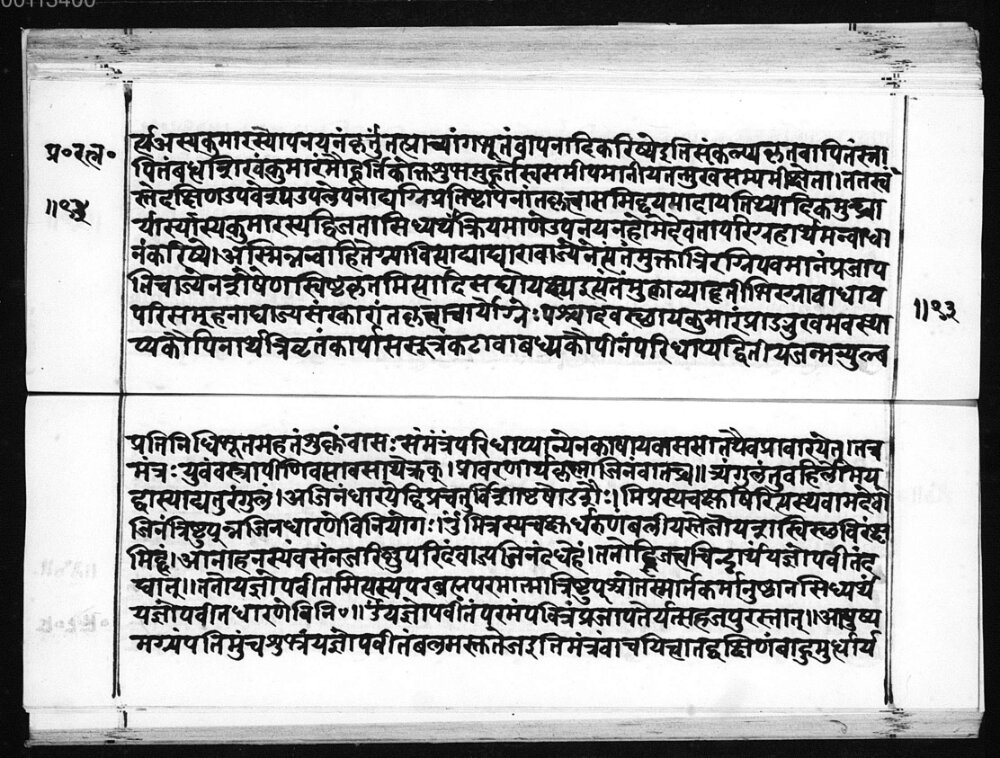 00113400
र्य्यअस्यकुमारस्योपनयनंकर्तुंतत्प्राच्यांगभूतंवापनादिकरिष्येइतिसंकल्प्यकृतवापितंस्ना
प्र॰रत्न॰
पितंबद्धशिखंकुमारंमौहूर्तिकोक्तशुभमुहूर्तेस्वसमीपमानीयतन्मुखसम्यमीक्षेता।ततस्वं
दक्षिणउपवेश्यउपलेपनाद्यग्निप्रतिष्ठापनांतंकृत्वासमिद्द्वयमादायतिथ्यादिकमुच्चा
॥१३
र्यास्यकुमारस्यद्विजतासिध्यर्थंक्रियमाणेउपनयनहोमेदेवतापरिग्रहार्थमन्वाधा
नंकरिष्ये।अस्मिन्नन्वाहितेग्नावित्याद्याघारावाज्येनेत्यंतमुक्त्वात्रिरग्निंपवमानंप्रजाप
तिंचाज्येनशेषेणस्विष्टकृतमित्यादिसद्योयक्ष्यइत्यंतमुक्त्वाव्याहृतीभिरग्नावाधाय
॥१३
परिसमूहनाद्याज्यसंस्कारांतंकृत्वाचार्योग्नेःपश्चादवस्थायकुमारंप्राङ्मुखमवस्था
प्यकौपिनार्थंत्रिवृतंकार्पाससूत्रंकटावाबध्यकौपीनंपरिधाप्यद्वितीयजन्मन्युल्ब
प्रतिनिधिभूतमहतंशुक्लंवासःसमंत्रंपरिधाप्यान्येनकाषायवाससातथैवप्रावारयेत्।तत्र
मंत्रःयुवंवस्त्राणीपीवसावसाथेत्यैकऋक्।प्रावरणार्थंकृष्णाजिनंवातच्च॥त्र्यंगुलंतुबहिर्लोमय
द्वास्याच्चतुरंगुलं।अजिनंधारयेद्विप्रश्चतुर्विंशाष्टषोडशैः।मित्रस्यचक्षुषिरित्यस्यवामदेवो
जिनंत्रिष्टुप्अजिनधारणेविनियोगः।ॐमित्रस्यचक्षुर्धरुणंबलीयस्तेजोयशस्विस्थविरंस
मिद्धं।अनाहनस्यंवसनंजरिष्णुपरिदंवाज्यजिनंदधेहं।ततोद्विजत्वचिन्हार्थंयज्ञोपवीतंद
द्यात्॥ततोयज्ञोपवीतमित्यस्यपरब्रह्मपरमात्मात्रिष्टुप्श्रौतस्मार्तकर्मानुष्ठानसिध्यर्थं
यज्ञोपवीतधारणेविनि॰॥ॐयज्ञोपवीतंपरमंपवित्रंप्रजापतेर्यत्सहजंपुरस्तात्॥आयुष्य
मग्र्यंप्रतिमुंचशुभ्रंयज्ञोपवीतंबलमस्तुतेजइतिमंत्रंवाचयित्वातद्दक्षिणंबाहुमुद्धार्य